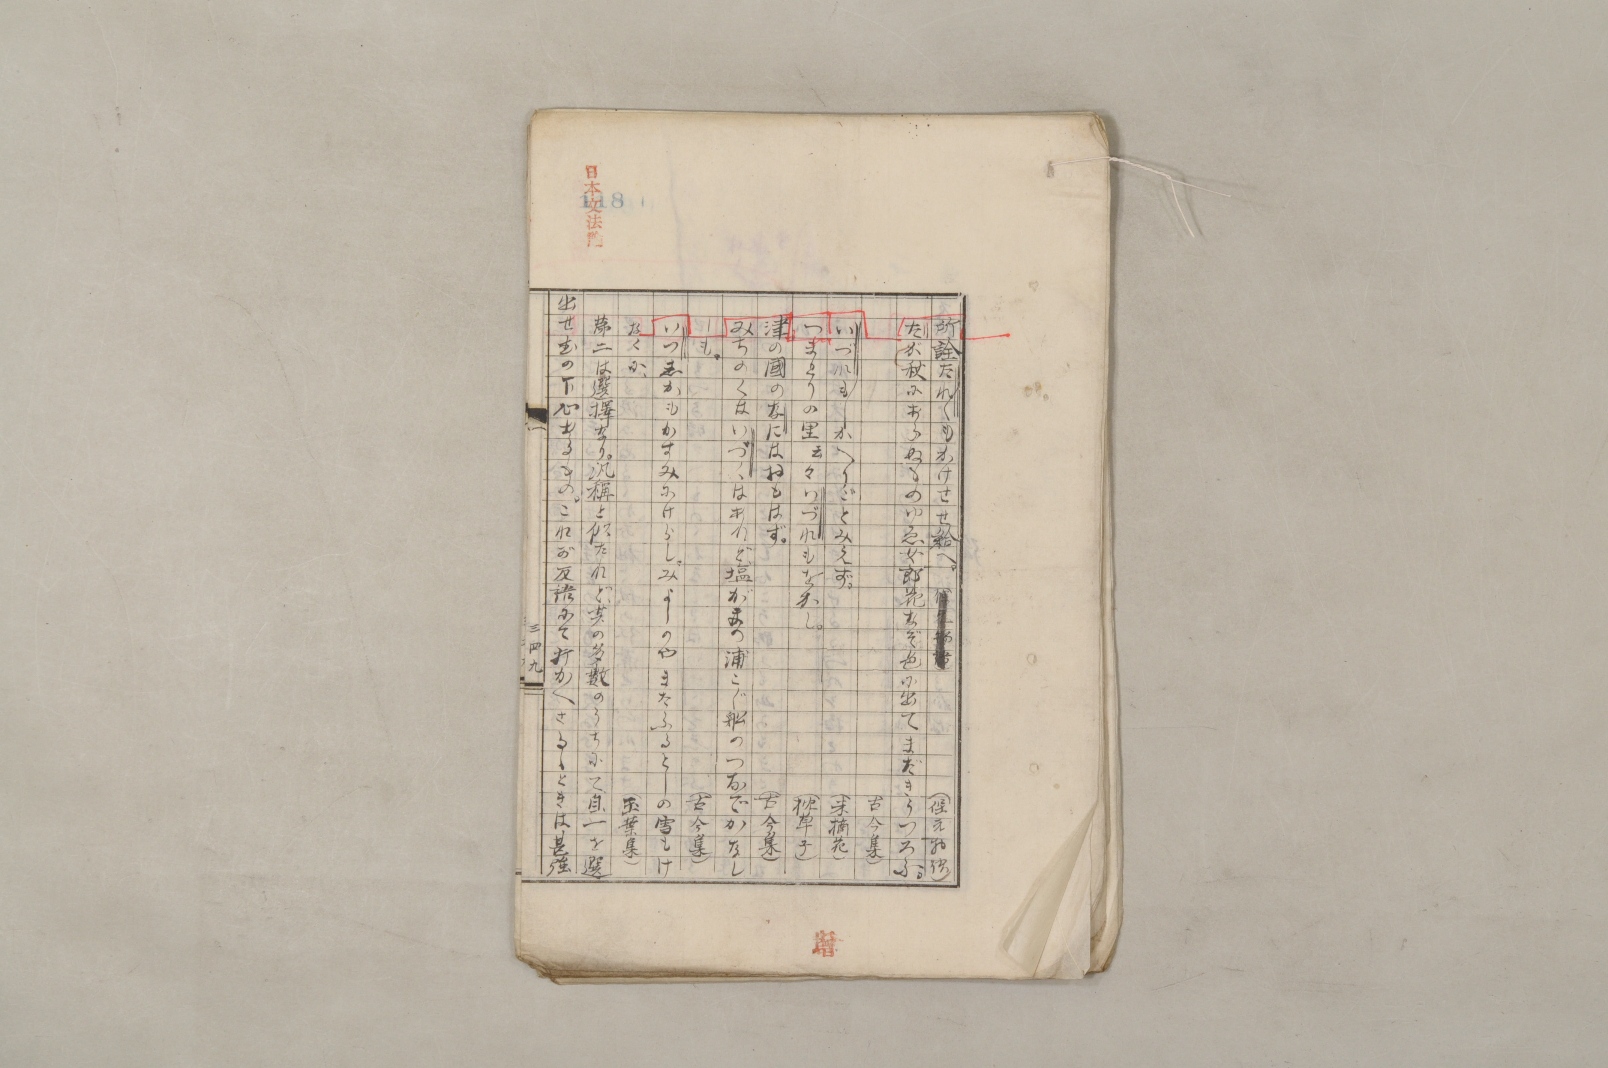 日本文法門
118
所詮たれ〱もかけさせ給へ。 (保元物語)
たが秋にあらぬものゆゑ女郎花なぞ色に出てまだきうつろふ。
(古今集)
いづれもかへりごとみえず。 (末摘花)
つまとりの里云々いづれもをかし。 (枕草子)
津の國のなにはおもはず。 (古今集)
みちのくはいづくはあれど塩がまの浦こぐ船のつなでかなし
も。 (古今集)
いつしかもかすみにけらしみよしのやまたふるとしの雪もけ
なくに、 (玉葉集)
第二は選擇なり。汎稱と似たれど、其の多數のうちにて自一を選
出せむの下心あるもの。これが反語にて打かへさるゝときは甚強
三四九